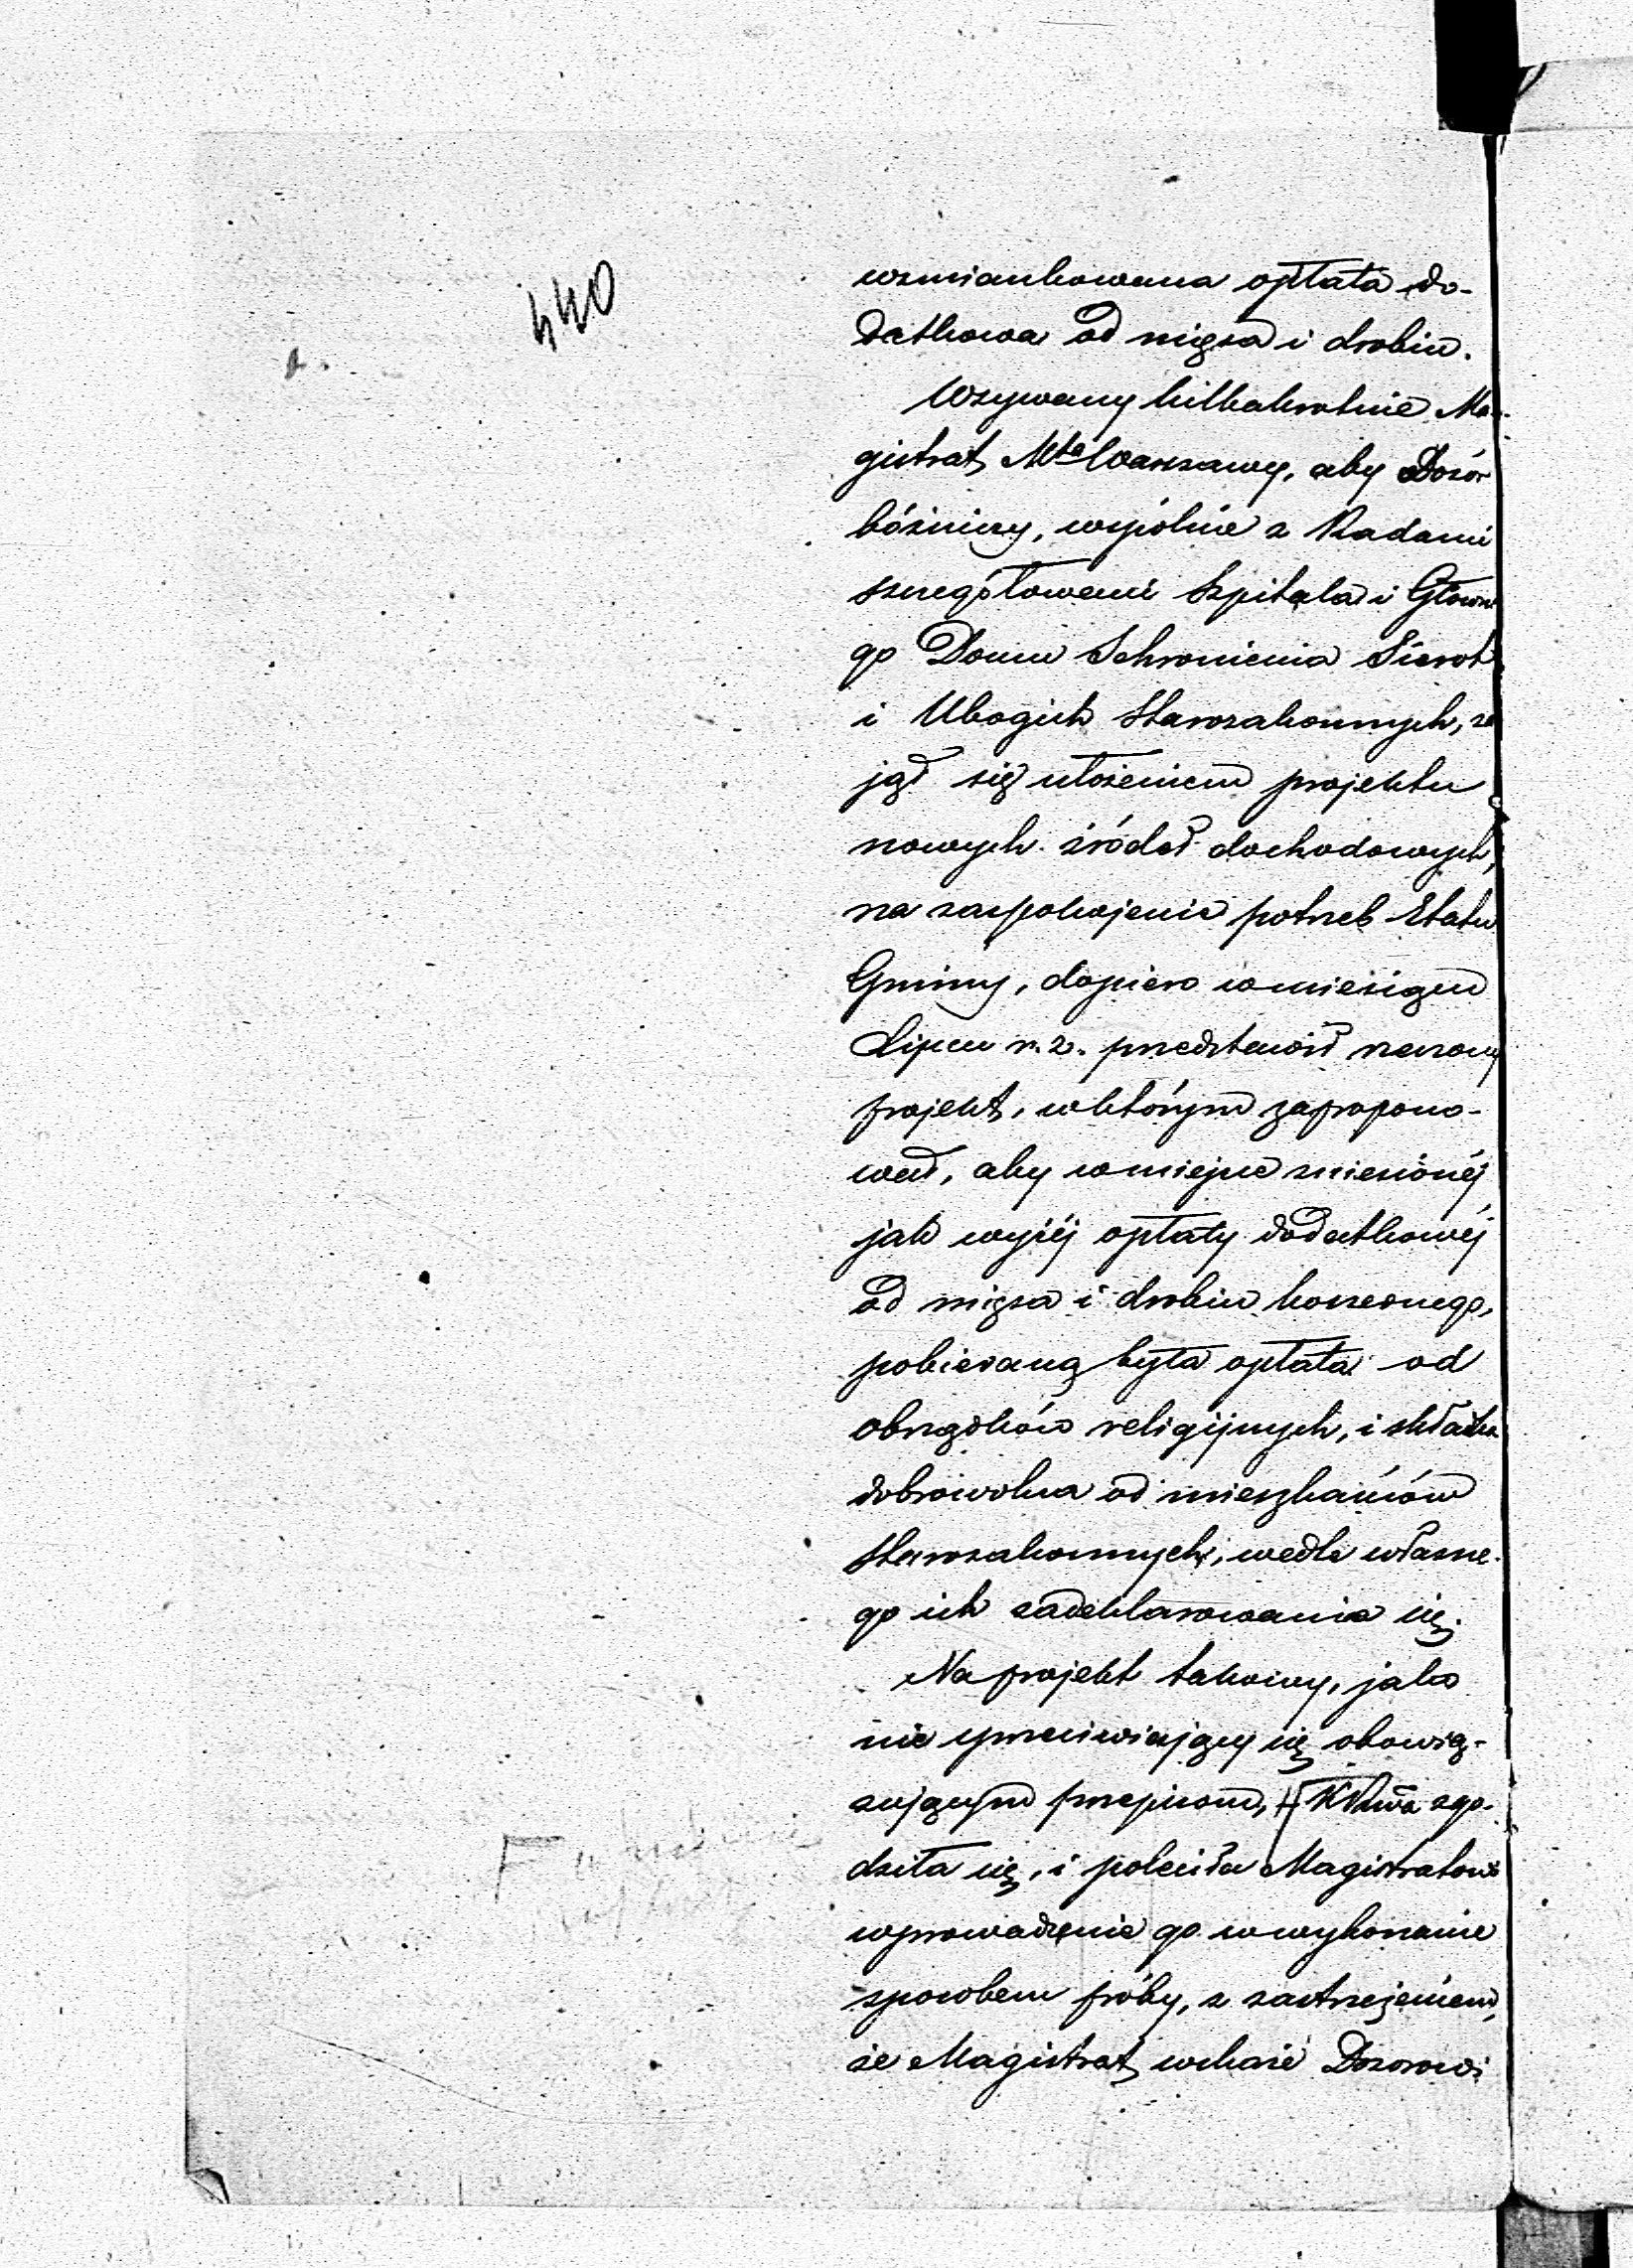 440
wzmiankowana opłata do-
datkowa od mięsa i drobiu.
Wzywany kilkakrotnie Ma-
gistrat Mta Warszawy, aby Dozór
bóżniczy, wspólnie z Radami
szczegółowemi Szpitala i Główne
go Domu Schronienia Sierot
i Ubogich Starozakonnych, za
jął się ułożeniem projektu
nowych źródeł dochodowych,
na zaspokojenie potrzeb Etatu
Gminy, dopiero w miesiącu
Lipcu r. z. przedstawił
projekt, w którym zapropono-
wał, aby w miejsce zniesionéj
jak wyżéj opłaty dodatkowéj
od mięsa i drobiu koszernego,
pobieraną była opłata od
obrządków religijnych, i składka
dobrowolna od mieszkańców
starozakonnych, wedle własne-
go ich zadeklarowania się.
Na projekt takowy, jako
nie sprzeciwiający się obowią-
zującym przepisom, zgo-
dziła się, i poleciła Magistratowi
wprowadzenie go w wykonanie
sposobem próby, z zastrzeżeniem,
że Magistrat wskaże Dozorowi